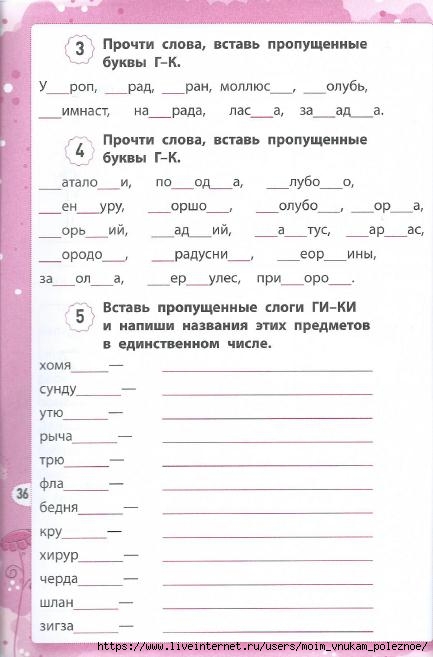 3 Прочти слова, вставь пропущенные
буквы Г–К.
У___роп, ___рад, ___ран, моллюс___, ___олубь,
___имнаст, на___рада, лас___а, за___ад___а.
4 Прочти слова, вставь пропущенные
буквы Г–К.
___атало___и, по___од___а, ___лубо___о,
___ен___уру, ___оршо___, ___олубо___, ___ор___а,
___орь___ий, ___ад___ий, ___а___тус, ___ар___ас,
___ородо___, ___радусни___, ___еор___ины,
за___ол___а, ___ер___улес, при___оро___.
5 Вставь пропущенные слоги ГИ–КИ
и напиши названия этих предметов
в единственном числе.
хомя______— ____________________
сунду______— ____________________
утю______— ____________________
рыча______— ____________________
трю______— ____________________
фла______— ____________________
36
бедня______— ____________________
кру______— ____________________
хирур______— ____________________
черда______— ____________________
шлан______— ____________________
зигза______— ____________________
https://www.liveinternet.ru/users/moim_vnukam_poleznoe/